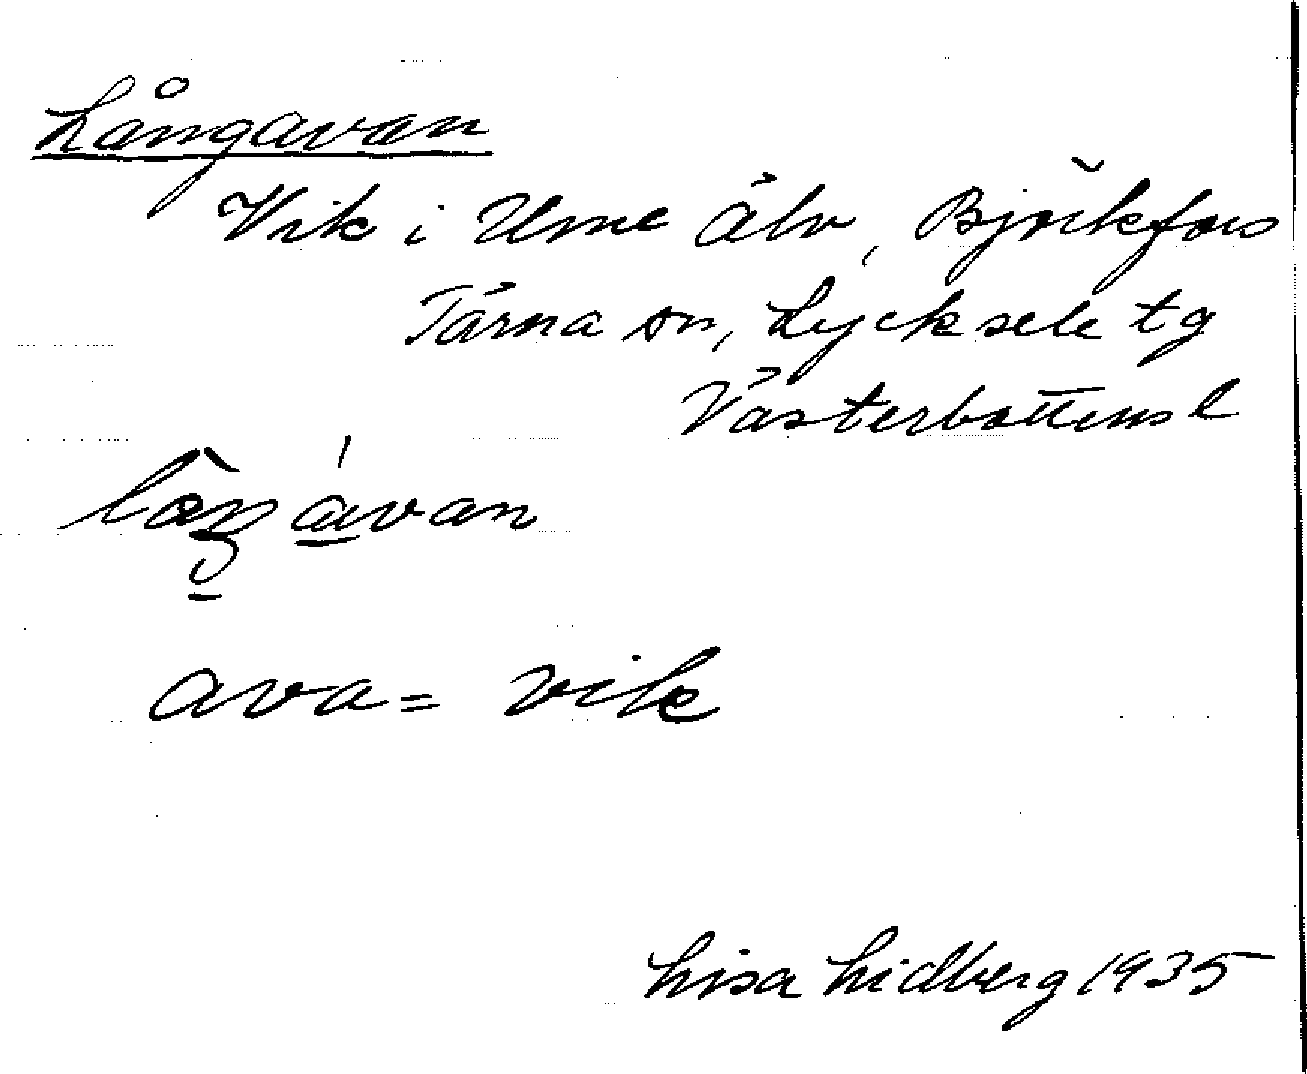 Långavan
Vik i Ume älv, Björkfors
Tärna sn, Lycksele tg
Västerbottens l
ávan
ava = vik
Lisa Lidberg 1935